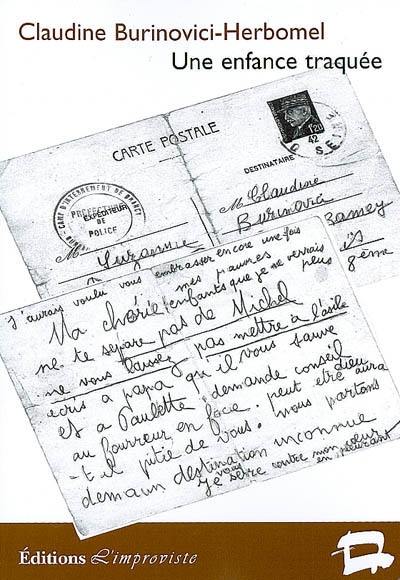 Claudine Burinovici-Herbomel
Une enfance traquée
CARTE POSTALE
1F20
42
DESTINATAIRE
CAMP D'INTERNEMENT DE DRANCY
PREFECTURE
DE
POLICE
EXPÉDITEUR
M
Suzanne
M Claudine
Burinovici
Ramey
J'aurais voulu vous embrasser encore une fois
mes pauvres
enfants que je ne verrais
peus
Ma chérie
ne te sépare pas de Michel
ne vous laissez pas mettre à l'asile
écris à papa qu'il vous sauve
et à Paulette, demande conseil
au fourreur en face. peut être Dieu
aura
-t-il pitié de vous. nous partons
demain destination inconnue
je vous serre contre mon coeur
en pleurant
Éditions L'improviste